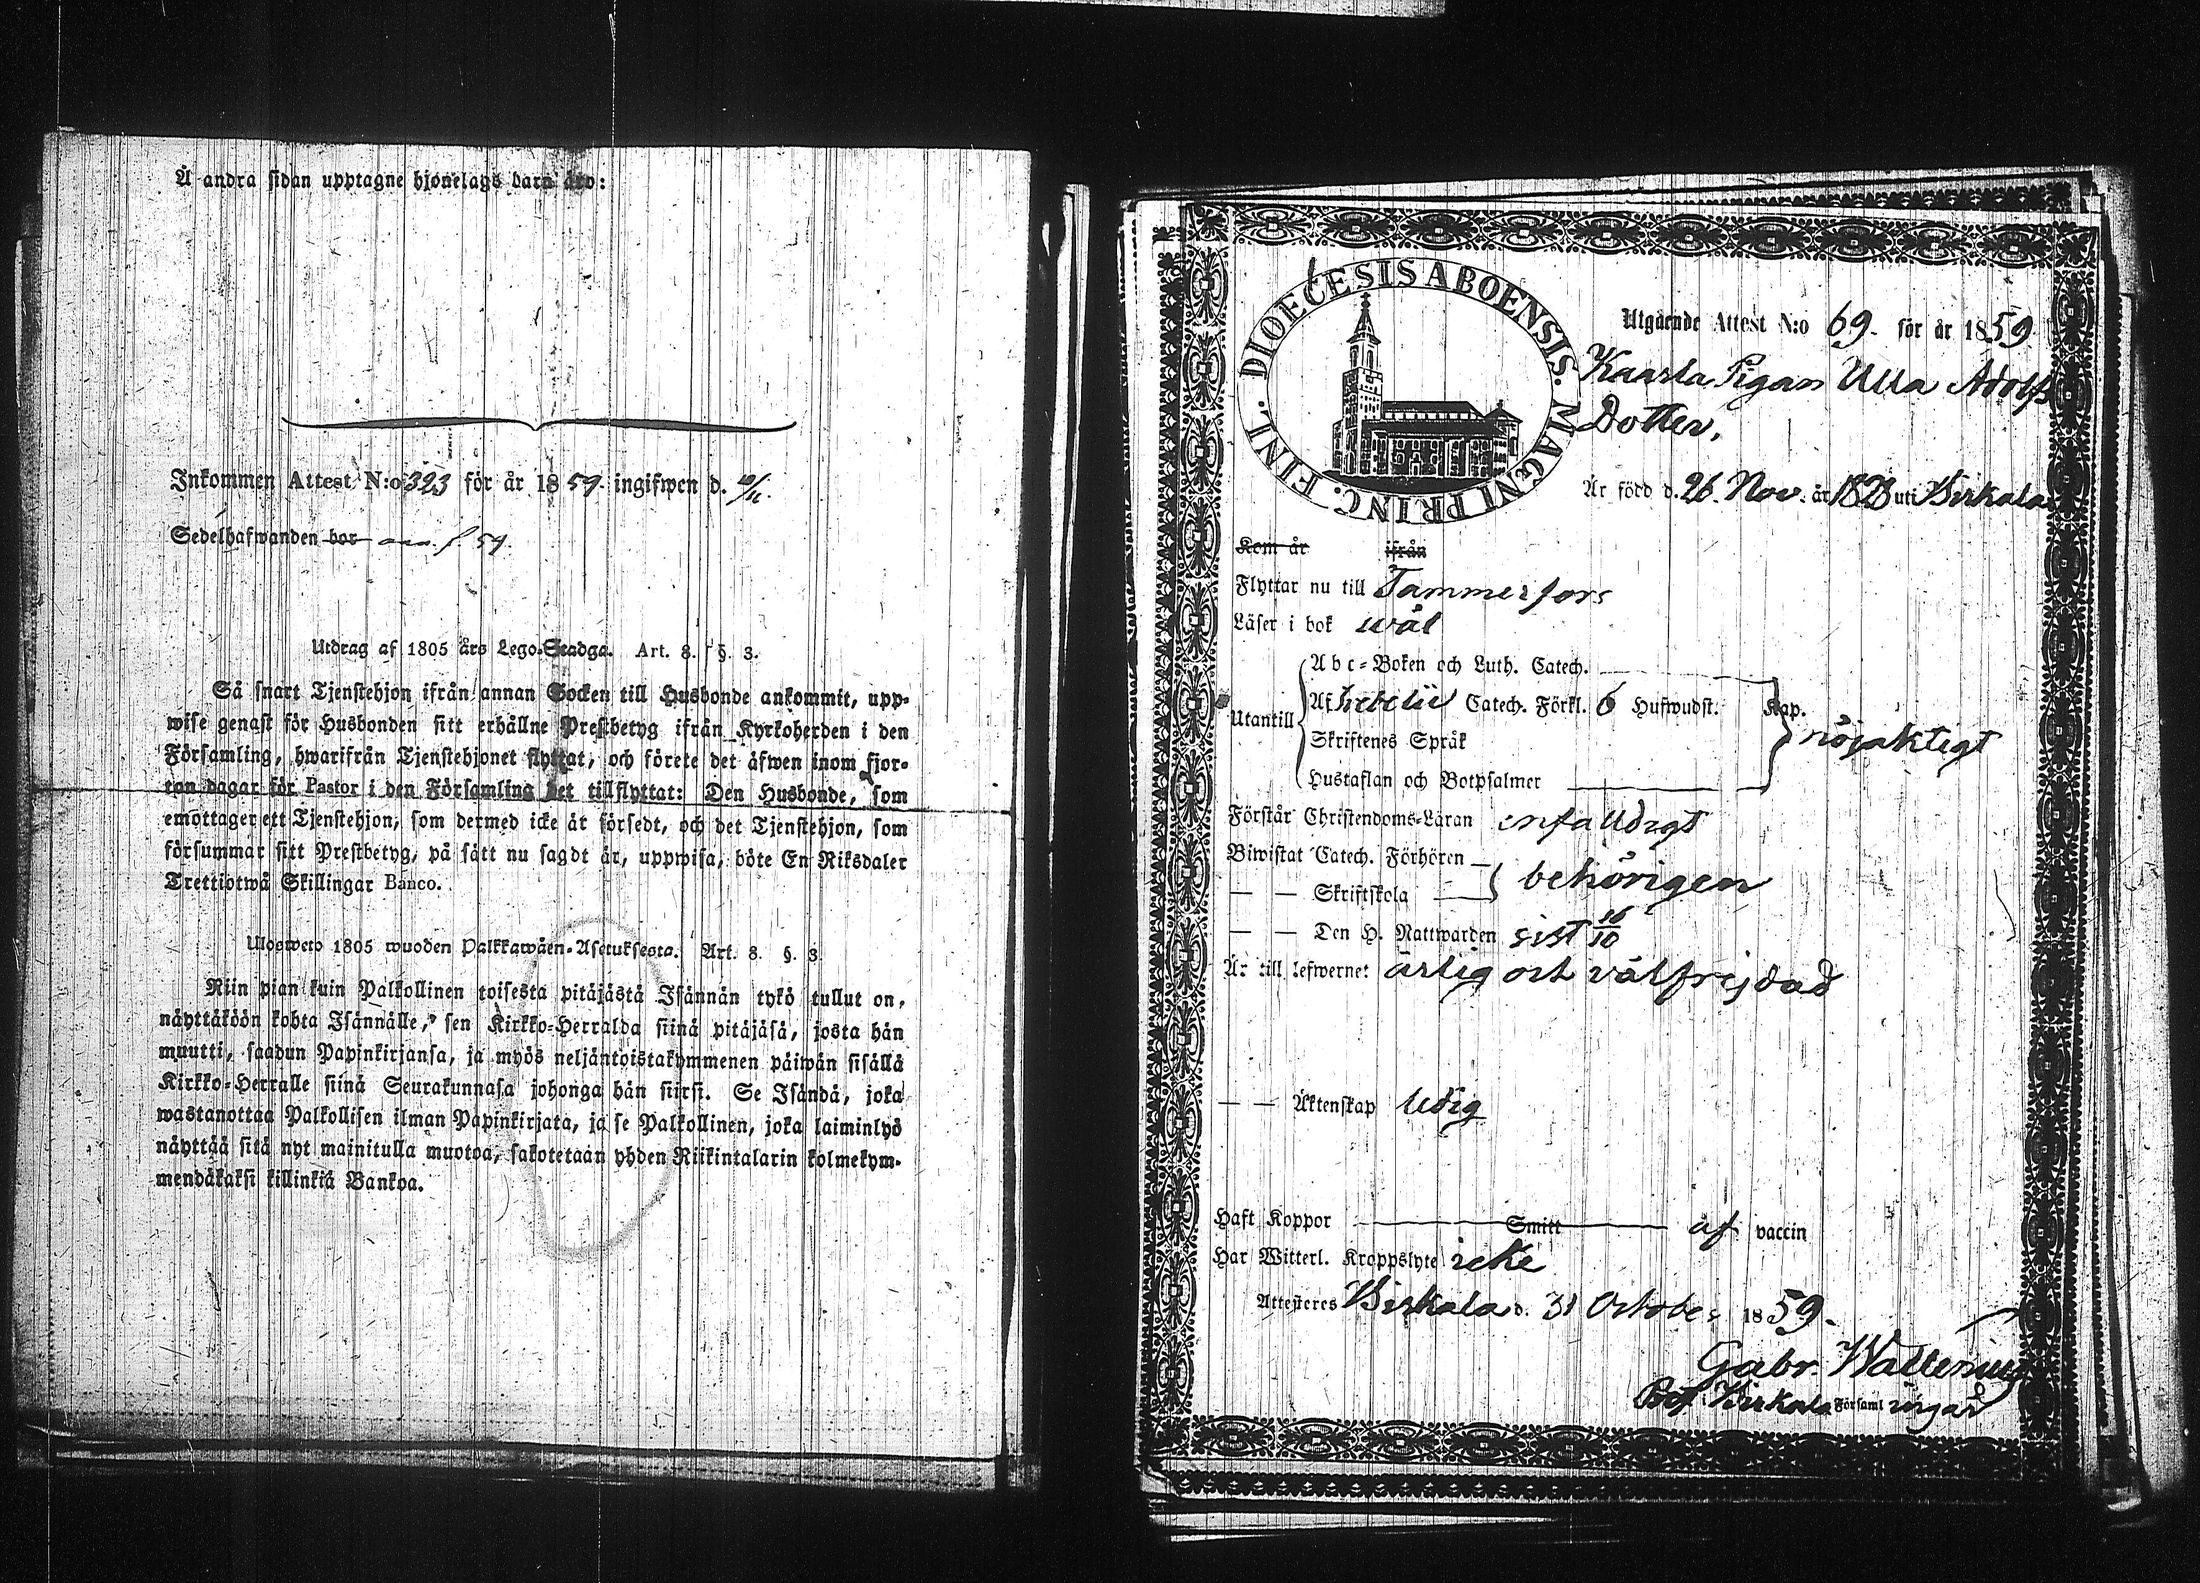 Å andra sidan upptagne hjonelags barn äro:
Inkommen Attest N:o 323 för år 1859. ingifwen d. 10/11.
Sedelhafwanden bor f 59.
Utdrag af 1805 års Lego-Stadga. Art. 8. §. 3.
Så snart Tjenstehjon ifrån annan Socken till Husbonde ankommit, upp-
wise genast för Husbonden sitt erhållne Prestbetyg ifrån Kyrkoherden i den
Församling, hwarifrån Tjenstehjonet flyttat, och förete det äfwen inom fjor-
ton dagar för Pastor i den Församling det tillflyttat: Den Husbonde, som
emottager ett Tjenstehjon, som dermed icke är försedt, och det Tjenstehjon, som
försummar sitt Prestbetyg, på sätt nu sagdt är, uppwisa, böte En Riksdaler
Trettiotwå Skillingar Banco.
Ulosweto 1805 wuoden Palkkawäen-Asetuksesta. Art. 8. §. 3.
Niin pian kuin Palkollinen toisesta pitäjästä Isännän tykö tullut on,
näyttäköön kohta Isännälle, sen Kirkko-Herralda siinä pitäjäsä, josta hän
muutti, saadun Papinkirjansa, ja myös neljäntoistakymmenen päiwän sisällä
Kirkko-Herralle siinä Seurakunnasa johonga hän siirsi. Se Isändä, joka
wastanottaa Palkollisen ilman Papinkirjata, ja se Palkollinen, joka laiminlyö
näyttää sitä nyt mainitulla muotoa, sakotetaan yhden Riikintalarin kolmekym-
mendäkaksi killinkiä Bankoa.
DIOECESIS ABOENSIS. MAGNI PRINC. FINL.
Utgående Attest N:o 69. för år 1859
Kaarla Pigan Ulla Adolfs
Dotter,
Är född d. 26. Nov. år 1828 uti Birkala
Kom år ifrån
Flyttar nu till Tammerfors
Läser i bok wäl
Abc-Boken och Luth. Catech.
Utantill Af Catech. Förkl. 6 Hufwudst. Kap. nöjaktigt
Skriftenes Språk
Hustaflan och Botpsalmer
Förstår Christendoms-Läran enfalldigt
Biwistat Catech. Förhören behörigen
— — Skriftskola
— — Den H. Nattwarden sist 16/10
Är till lefwernet ärlig och välfrejdad
— — Äktenskap ledig
Haft Koppor Smitt af vaccin
Har Witterl. Kroppslyte icke
Attesteres Birkala d. 31 October 1859.
Gabr. Wallenius
Past. Birkala Församlingar